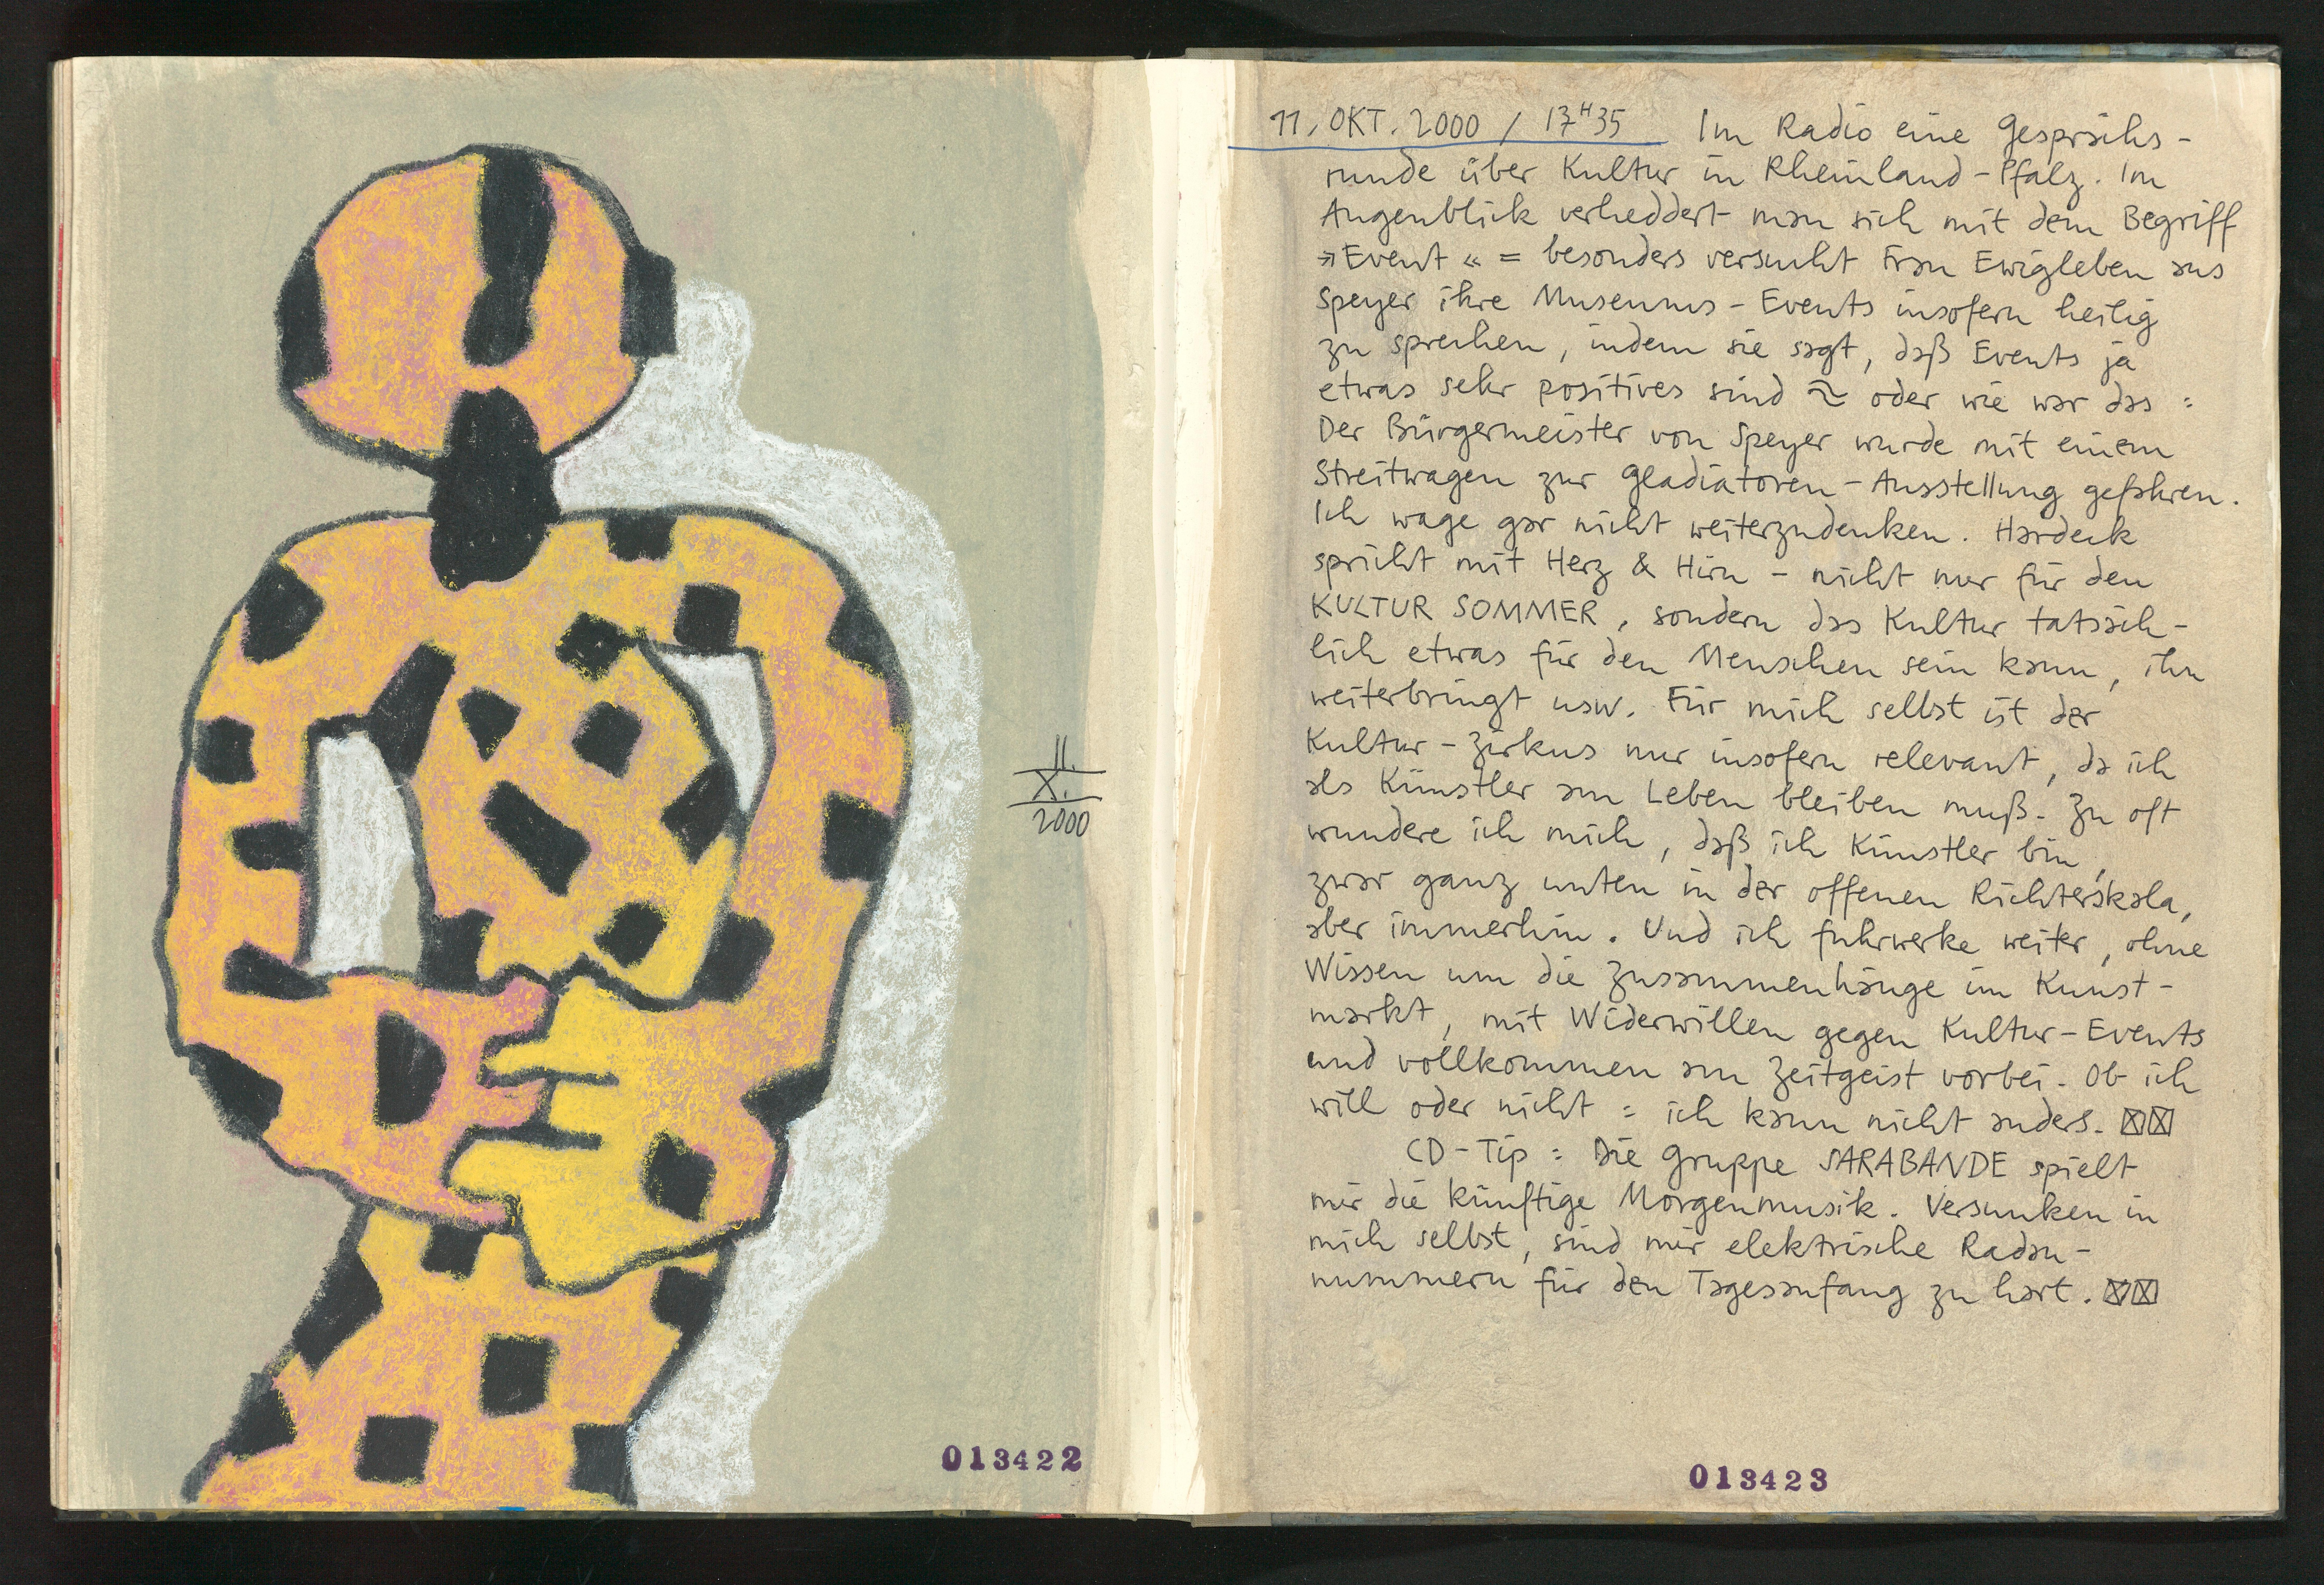 11.
X.
2000
013422
11. OKT. 2000 / 17H35 Im Radio eine Gesprächs-
runde über Kultur in Rheinland-Pfalz. Im
Augenblick verheddert man sich mit dem Begriff
»Event« = besonders versucht Frau Ewigleben aus
Speyer ihre Museums-Events insofern heilig
zu sprechen, indem sie sagt, daß Events ja
etwas sehr positives sind ~ oder wie war das =
Der Bürgermeister von Speyer wurde mit einem
Streitwagen zur Gladiatoren-Ausstellung gefahren.
Ich wage gar nicht weiterzudenken. Hardeck
spricht mit Herz & Hirn – nicht nur für den
KULTUR SOMMER, sondern das Kultur tatsäch-
lich etwas für den Menschen sein kann, ihn
weiterbringt usw. Für mich selbst ist der
Kultur-Zirkus nur insofern relevant, da ich
als Künstler am Leben bleiben muß. Zu oft
wundere ich mich, daß ich Künstler bin,
zwar ganz unten in der offenen Richterskala,
aber immerhin. Und ich fuhrwerke weiter, ohne
Wissen um die Zusammenhänge im Kunst-
markt, mit Widerwillen gegen Kultur-Events
und vollkommen am Zeitgeist vorbei. Ob ich
will oder nicht = ich kann nicht anders.
CD-Tip = Die Gruppe SARABANDE spielt
mir die künftige Morgenmusik. Versunken in
mich selbst, sind mir elektrische Radau-
nummern für den Tagesanfang zu hart.
013423